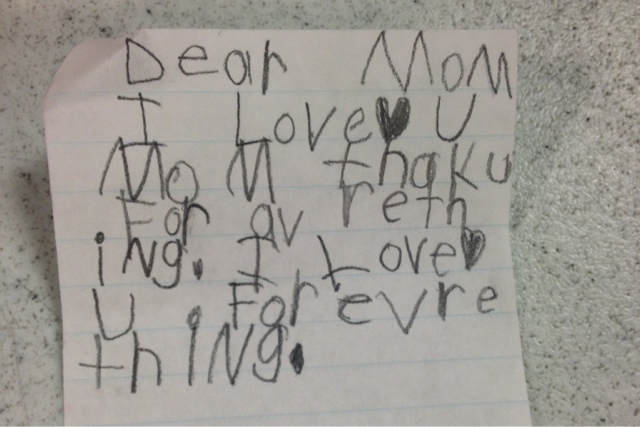 Dear MoM
I Love♥ U
MoM thaku
For av reth
iNg. I Love♥
U . For evre
thiNg.